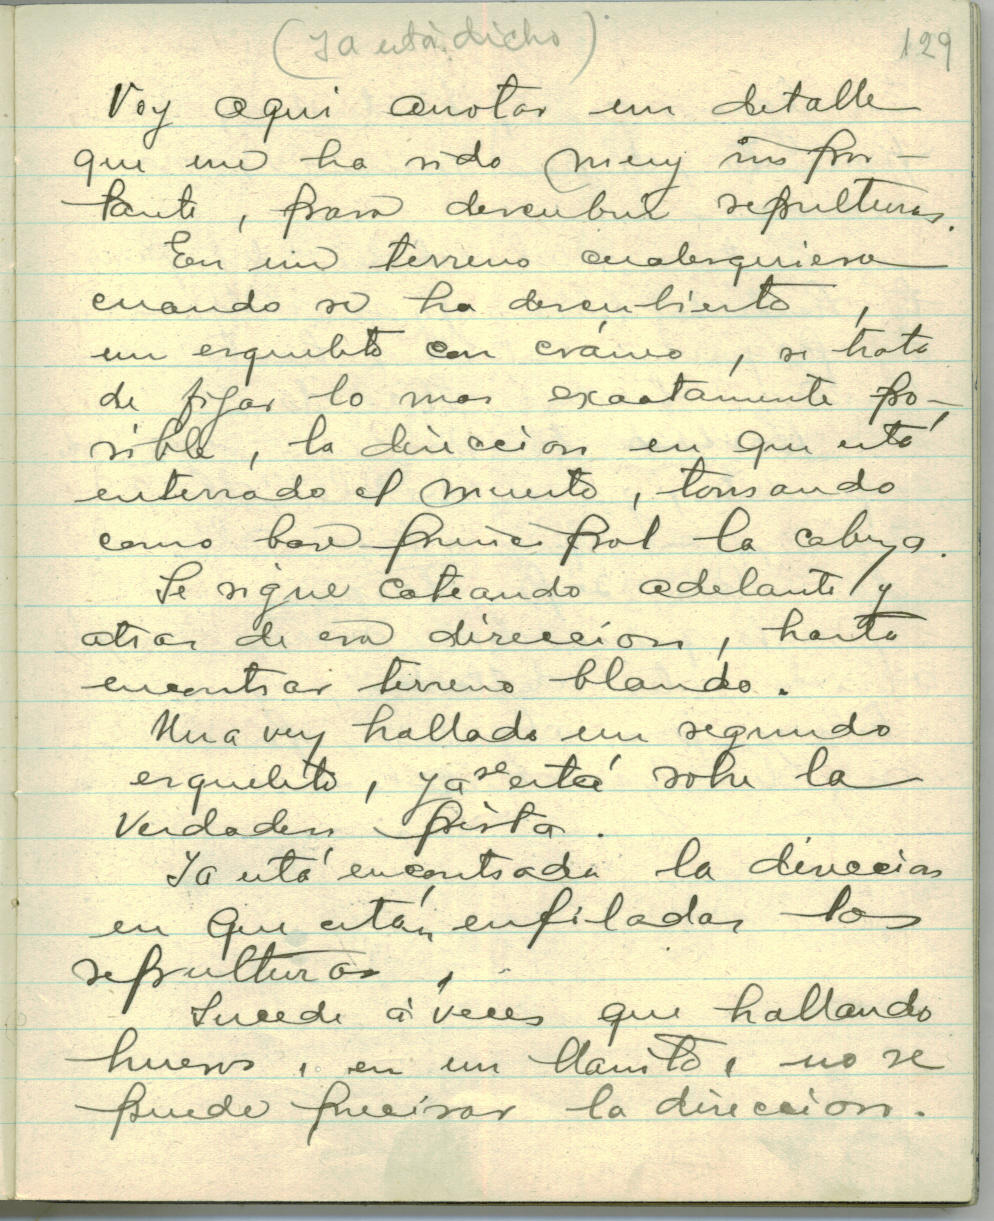 (Ya está dicho)
129
Voy aqui anotar un detalle
que me ha sido muy impor-
tante, para descubrir sepulturas.
En un terreno cualesquiera
cuando se ha descubierto,
un esqueleto con cráneo, se trata
de fijar lo mas exactamente po-
sible, la direccion en que está
enterrado el muerto, tomando
como base principal la cabeza.
Se sigue cateando adelante y
atras de esa direccion, hasta
encontrar terreno blando.
Una vez hallado un segundo
esqueleto, ya se está sobre la
verdadera pista.
Ya está encontrada la direccion
en que están enfiladas las
sepulturas.
Sucede á veces que hallando
huesos, en un llanito, no se
puede precisar la direccion.